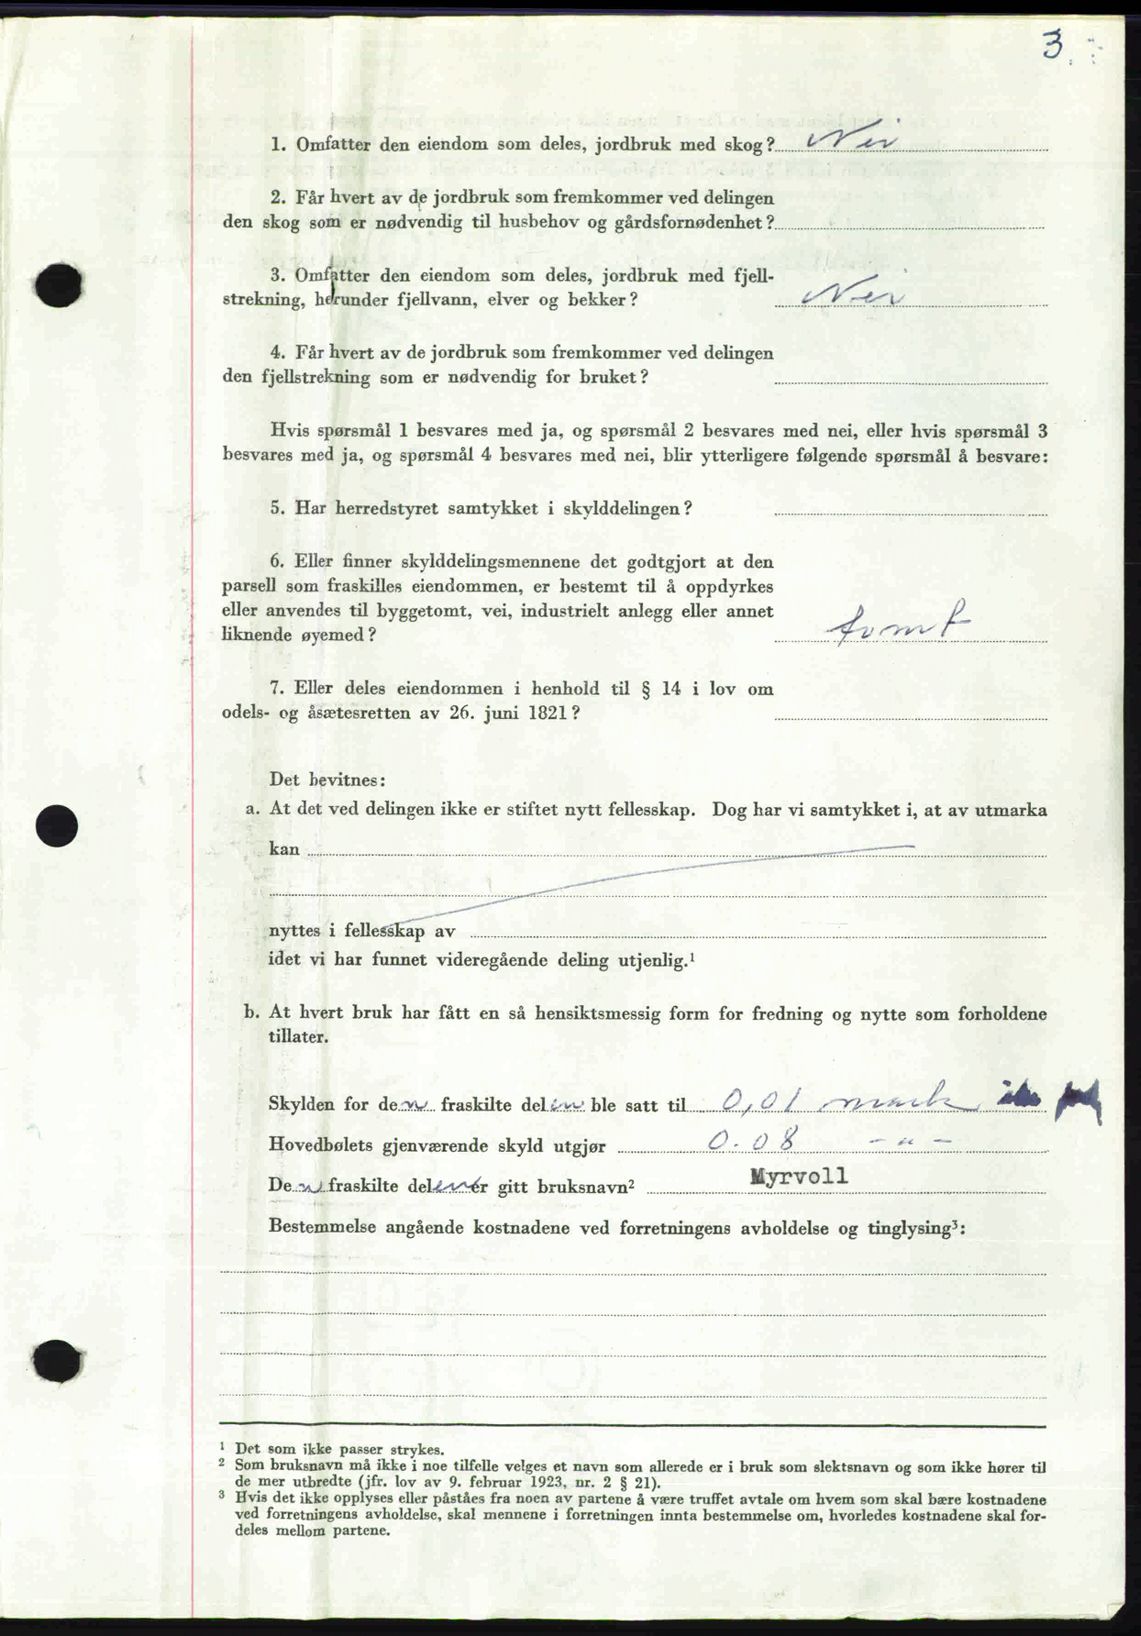 3.
1. Omfatter den eiendom som deles, jordbruk med skog? Nei
2. Får hvert av de jordbruk som fremkommer ved delingen
den skog som er nødvendig til husbehov og gårdsfornødenhet?
3. Omfatter den eiendom som deles, jordbruk med fjell-
strekning, herunder fjellvann, elver og bekker? Nei
4. Får hvert av de jordbruk som fremkommer ved delingen
den fjellstrekning som er nødvendig for bruket?
Hvis spørsmål 1 besvares med ja, og spørsmål 2 besvares med nei, eller hvis spørsmål 3
besvares med ja, og spørsmål 4 besvares med nei, blir ytterligere følgende spørsmål å besvare:
5. Har herredstyret samtykket i skylddelingen?
6. Eller finner skylddelingsmennene det godtgjort at den
parsell som fraskilles eiendommen, er bestemt til å oppdyrkes
eller anvendes til byggetomt, vei, industrielt anlegg eller annet
liknende øyemed? tomt
7. Eller deles eiendommen i henhold til § 14 i lov om
odels- og åsætesretten av 26. juni 1821?
Det bevitnes:
a. At det ved delingen ikke er stiftet nytt fellesskap. Dog har vi samtykket i, at av utmarka
kan
nyttes i fellesskap av
idet vi har funnet videregående deling utjenlig.¹
b. At hvert bruk har fått en så hensiktsmessig form for fredning og nytte som forholdene
tillater.
Skylden for den fraskilte delen ble satt til 0,01 mark
Hovedbølets gjenværende skyld utgjør 0.08 -"-
Den fraskilte delen er gitt bruksnavn² Myrvoll
Bestemmelse angående kostnadene ved forretningens avholdelse og tinglysing³:
¹ Det som ikke passer strykes.
² Som bruksnavn må ikke i noe tilfelle velges et navn som allerede er i bruk som slektsnavn og som ikke hører til
de mer utbredte (jfr. lov av 9. februar 1923, nr. 2 § 21).
³ Hvis det ikke opplyses eller påståes fra noen av partene å være truffet avtale om hvem som skal bære kostnadene
ved forretningens avholdelse, skal mennene i forretningen innta bestemmelse om, hvorledes kostnadene skal for-
deles mellom partene.